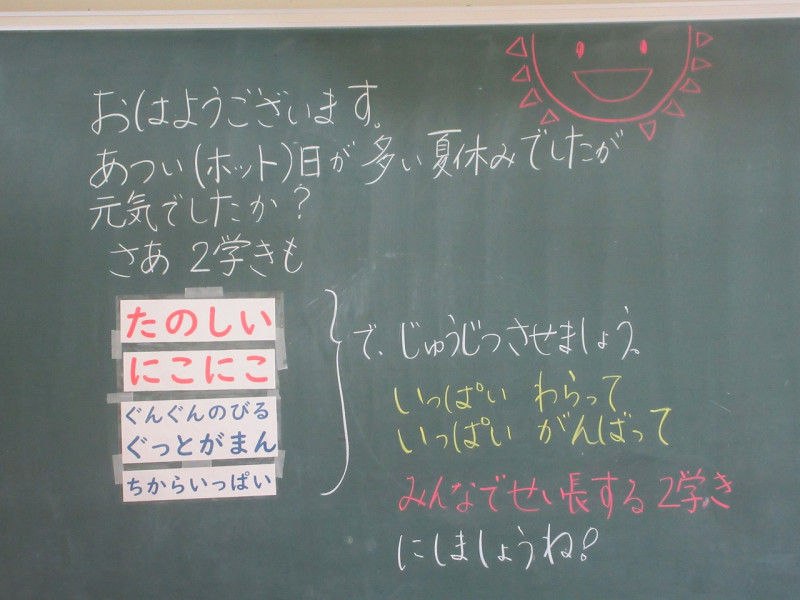 おはようございます。
あつい(ホット)日が多い夏休みでしたが
元気でしたか?
さあ 2学きも
たのしい
にこにこ
ぐんぐんのびる
ぐっとがまん
ちからいっぱい
で、じゅうじつさせましょう。
いっぱい わらって
いっぱい がんばって
みんなでせい長する2学き
にしましょうね!